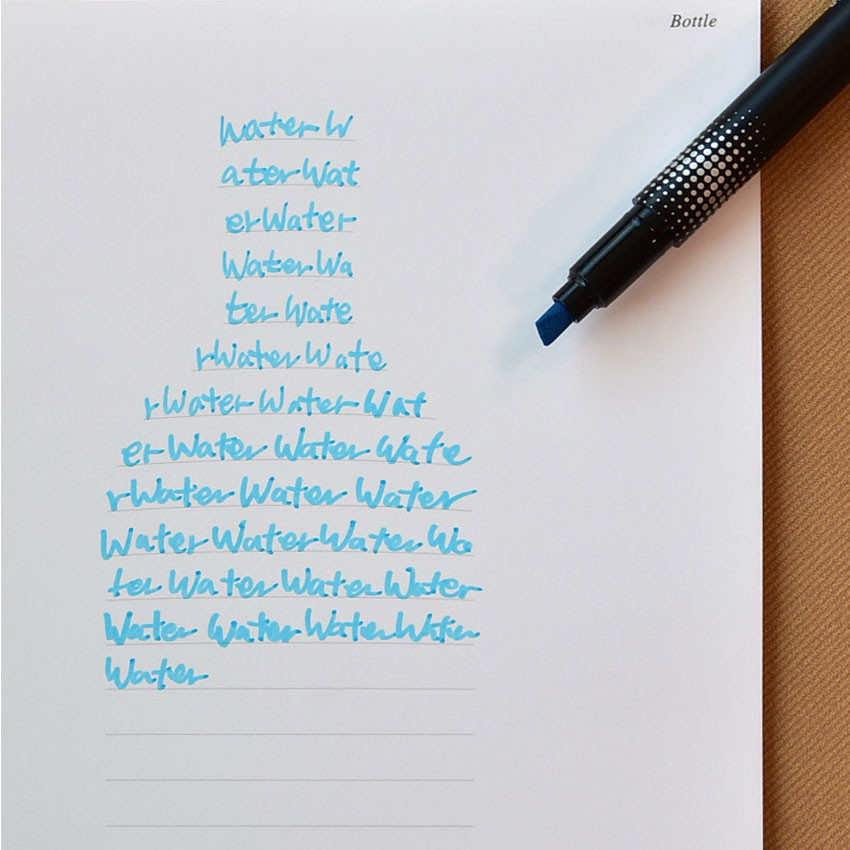 Bottle
Water W
ater Wat
er Water
Water Wa
ter Wate
r Water Wate
r Water Water Wat
er Water Water Wate
r Water Water Water
Water Water Water Wa
ter Water Water Water
Water Water Water Water
Water